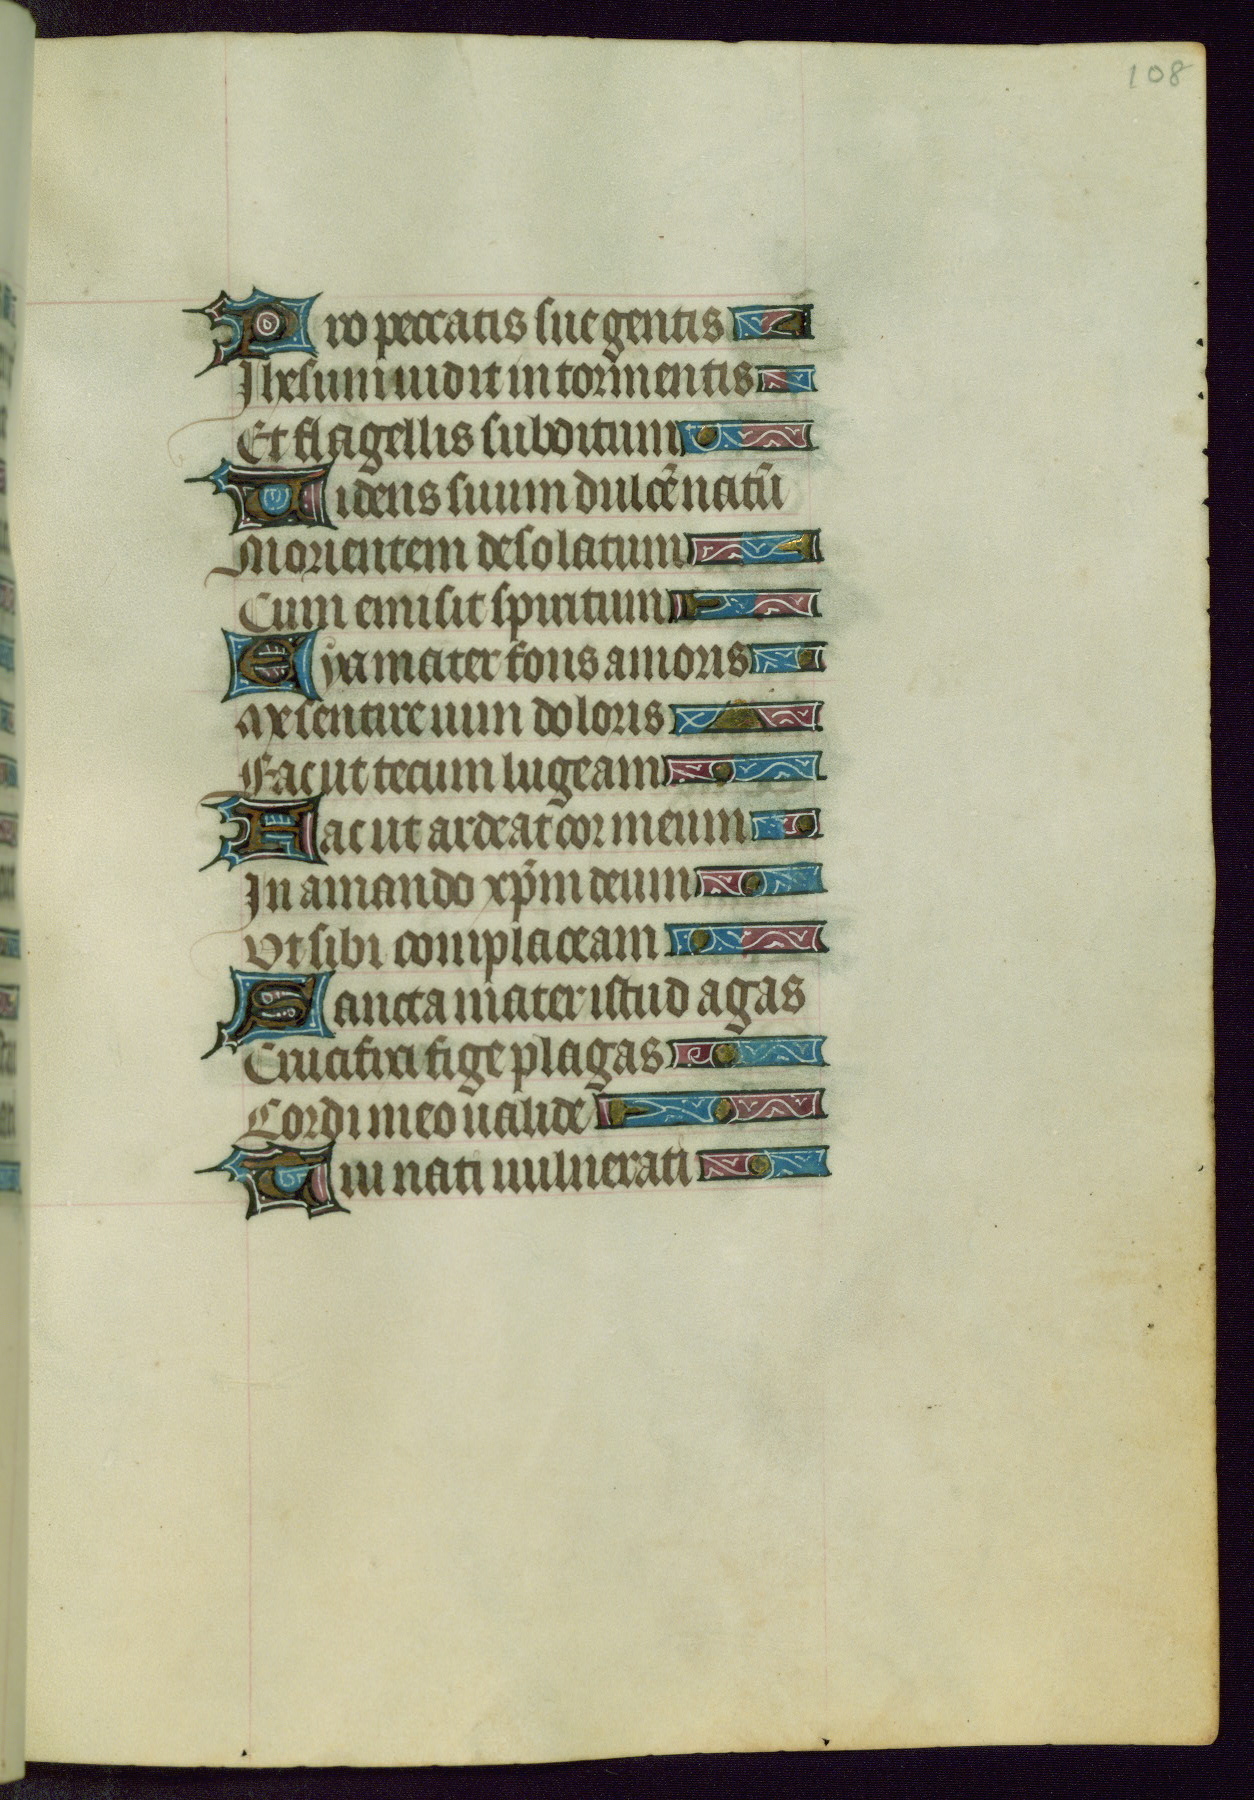 108
Pro peccatis sue gentis
Ihesum uidit in tormentis
Et flagellis subditum
Uidens suum dulcē natū
Morientem desolatum
Cum emisit spiritum
Eya mater fons amoris
Me sentire uim doloris
Fac ut tecum lugeam
Fac ut ardeat cor meum
In amando xp̄m deum
Ut sibi complaceam
Sancta mater istud agas
Crucifixi fige plagas
Cordi meo ualide
Tui nati uulnerati